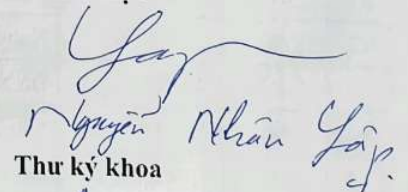 Nguyễn Nhân Lập
Thư ký khoa